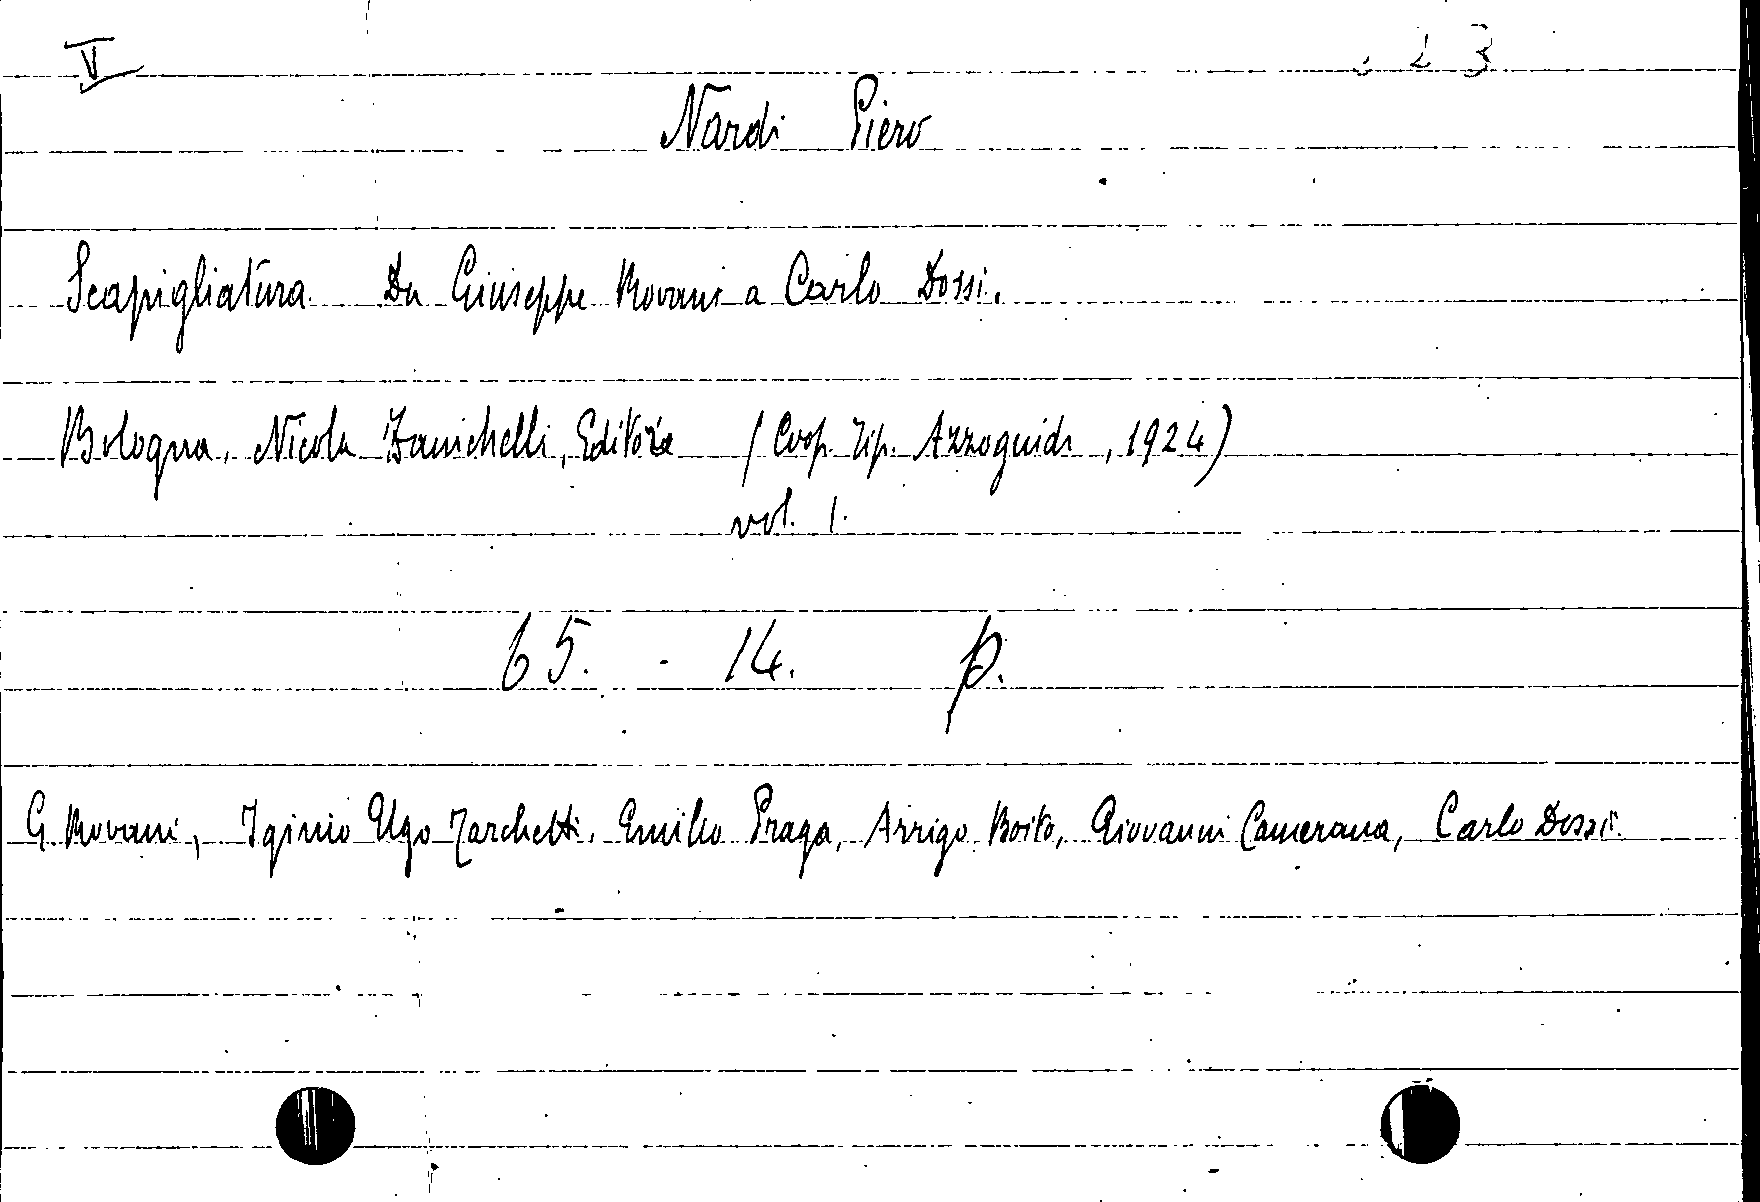 V
23
Nardi Piero
Scapigliatura. Da Giuseppe Rovani a Carlo Dossi.
Bologna, Nicola Zanichelli, Editore (Coop. Tip. Azzoguidi, 1924)
vol. 1.
65. - 14. p.
G. Rovani, Iginio Ugo Tarchetti, Emilio Praga, Arrigo Boito, Giovanni Camerana, Carlo Dossi.